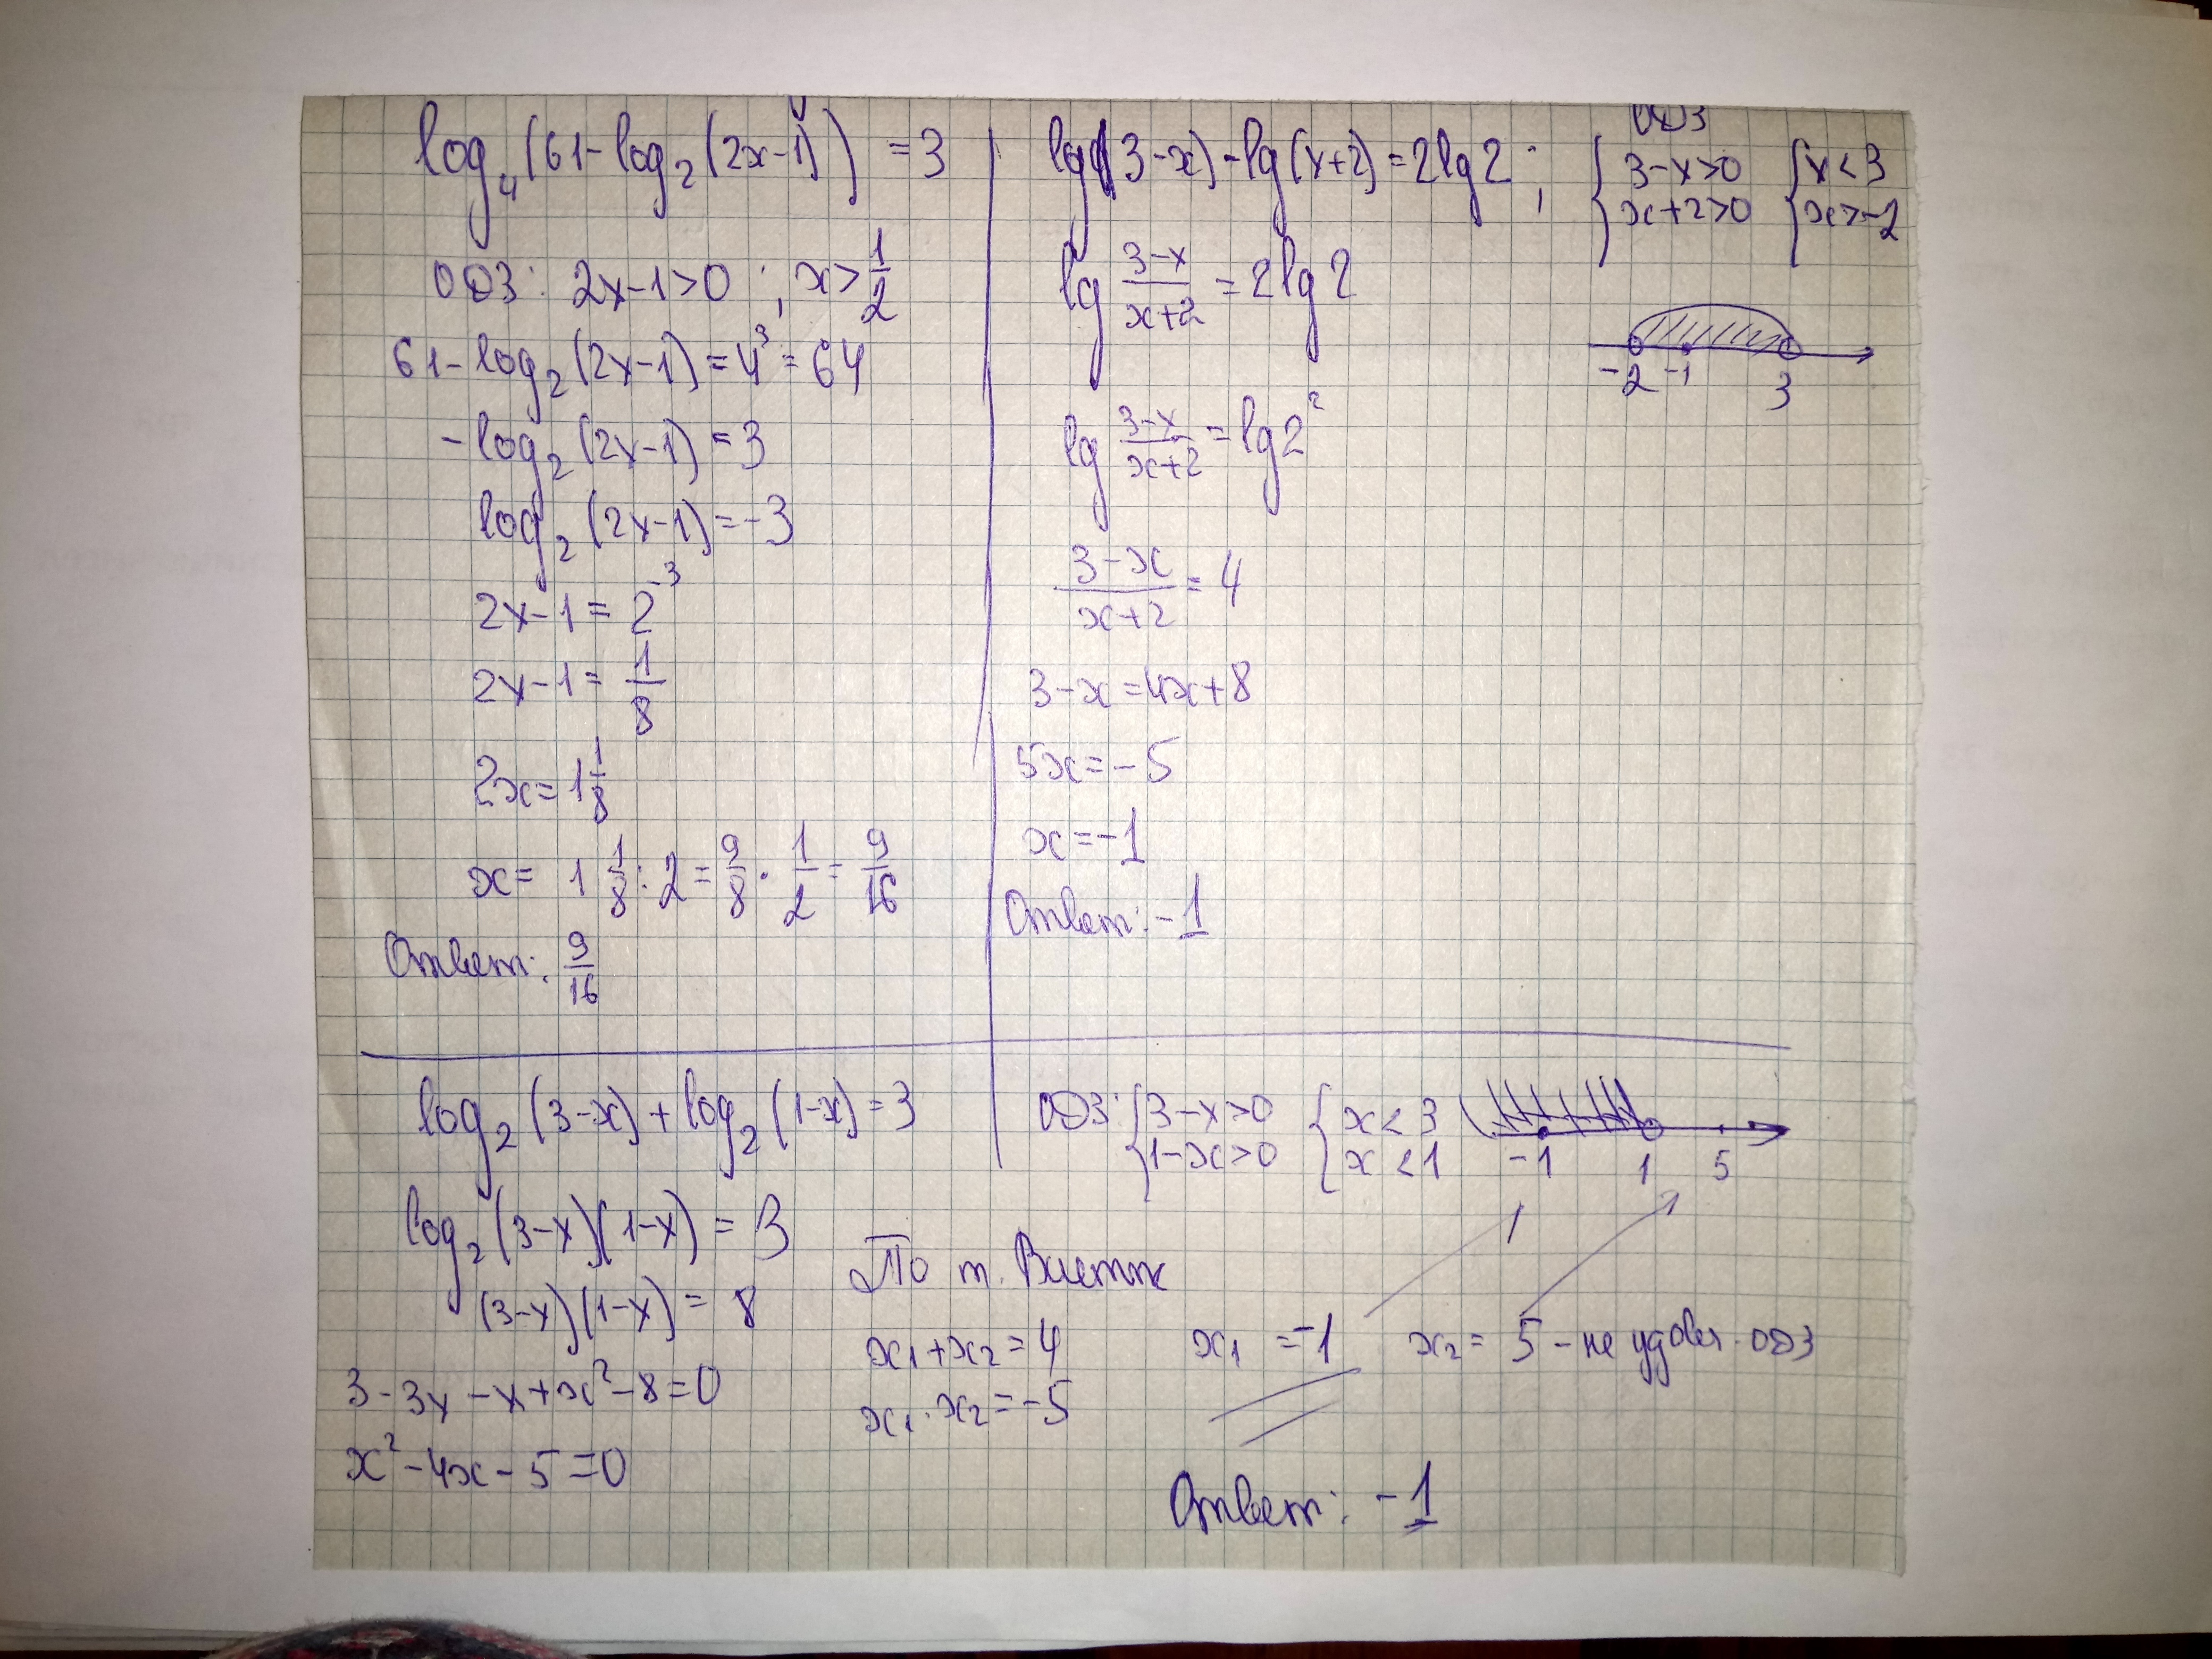 log₄(61-log₂(2x-1)) = 3
ОДЗ: 2x-1>0 ; x> 1/2
61-log₂(2x-1) = 4³ = 64
-log₂(2x-1) = 3
log₂(2x-1) = -3
2x-1 = 2⁻³
2x-1 = 1/8
2x = 1 1/8
x = 1 1/8 : 2 = 9/8 · 1/2 = 9/16
Ответ: 9/16
lg(3-x) - lg(x+2) = 2lg2 ;
ОДЗ
{3-x>0 {x<3
{x+2>0 {x>-2
-2 -1 3
lg (3-x)/(x+2) = 2lg2
lg (3-x)/(x+2) = lg2²
(3-x)/(x+2) = 4
3-x = 4x+8
5x = -5
x = -1
Ответ: -1
log₂(3-x) + log₂(1-x) = 3
log₂(3-x)(1-x) = 3
(3-x)(1-x) = 8
3-3x-x+x²-8=0
x²-4x-5=0
ОДЗ: {3-x>0 {x<3
{1-x>0 {x<1
-1 1 5
По т. Виетта
x₁+x₂=4
x₁·x₂=-5
x₁ = -1 x₂ = 5 - не удовл. ОДЗ
Ответ: -1